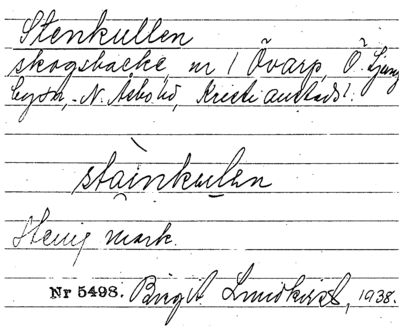 Stenkullen
skogsbacke, nr 1 Övarp, Ö. Ljung
bysn, N. Åsbo hd, Kristianstads l.
stàinkulen
Stenig mark.
Nr 5498. Birgit Lundkvist, 1938.